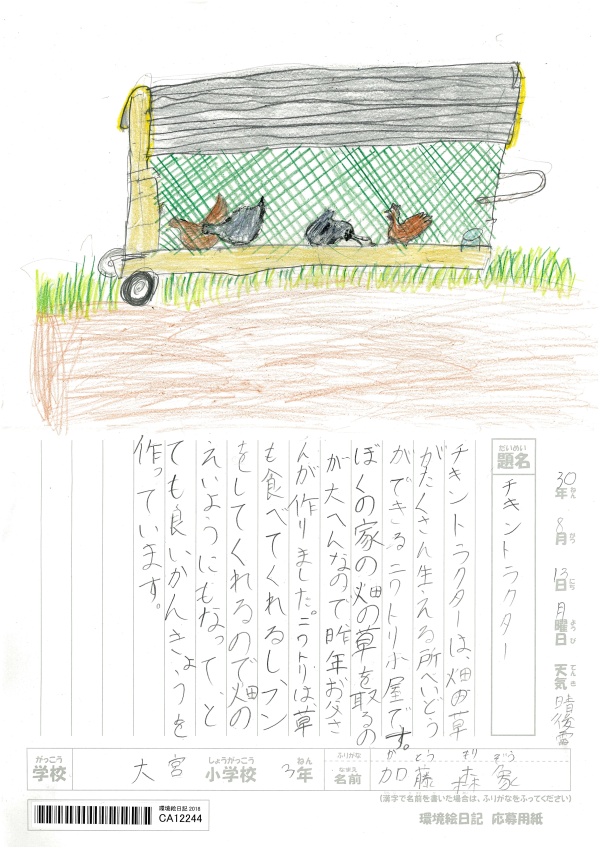 30年ねん 8月がつ 13日にち 月曜日ようび 天気てんき 晴後雷
だいめい
題名
チキントラクター
チキントラクターは、畑の草
がたくさん生える所へいどう
ができるニワトリ小屋です。
ぼくの家の畑の草を取るの
が大へんなので昨年お父さ
んが作りました。ニワトリは、草
も食べてくれるし、フン
をしてくれるので畑の
えいようにもなって、と
ても良いかんきょうを
作っています。
がっこう 学校 大宮 しょうがっこう 小学校 3年ねん
ふりがな かとう もりぞう
なまえ 名前 加藤 森象
(漢字で名前を書いた場合は、ふりがなをふってください)
環境絵日記 2018
CA12244
環境絵日記 応募用紙